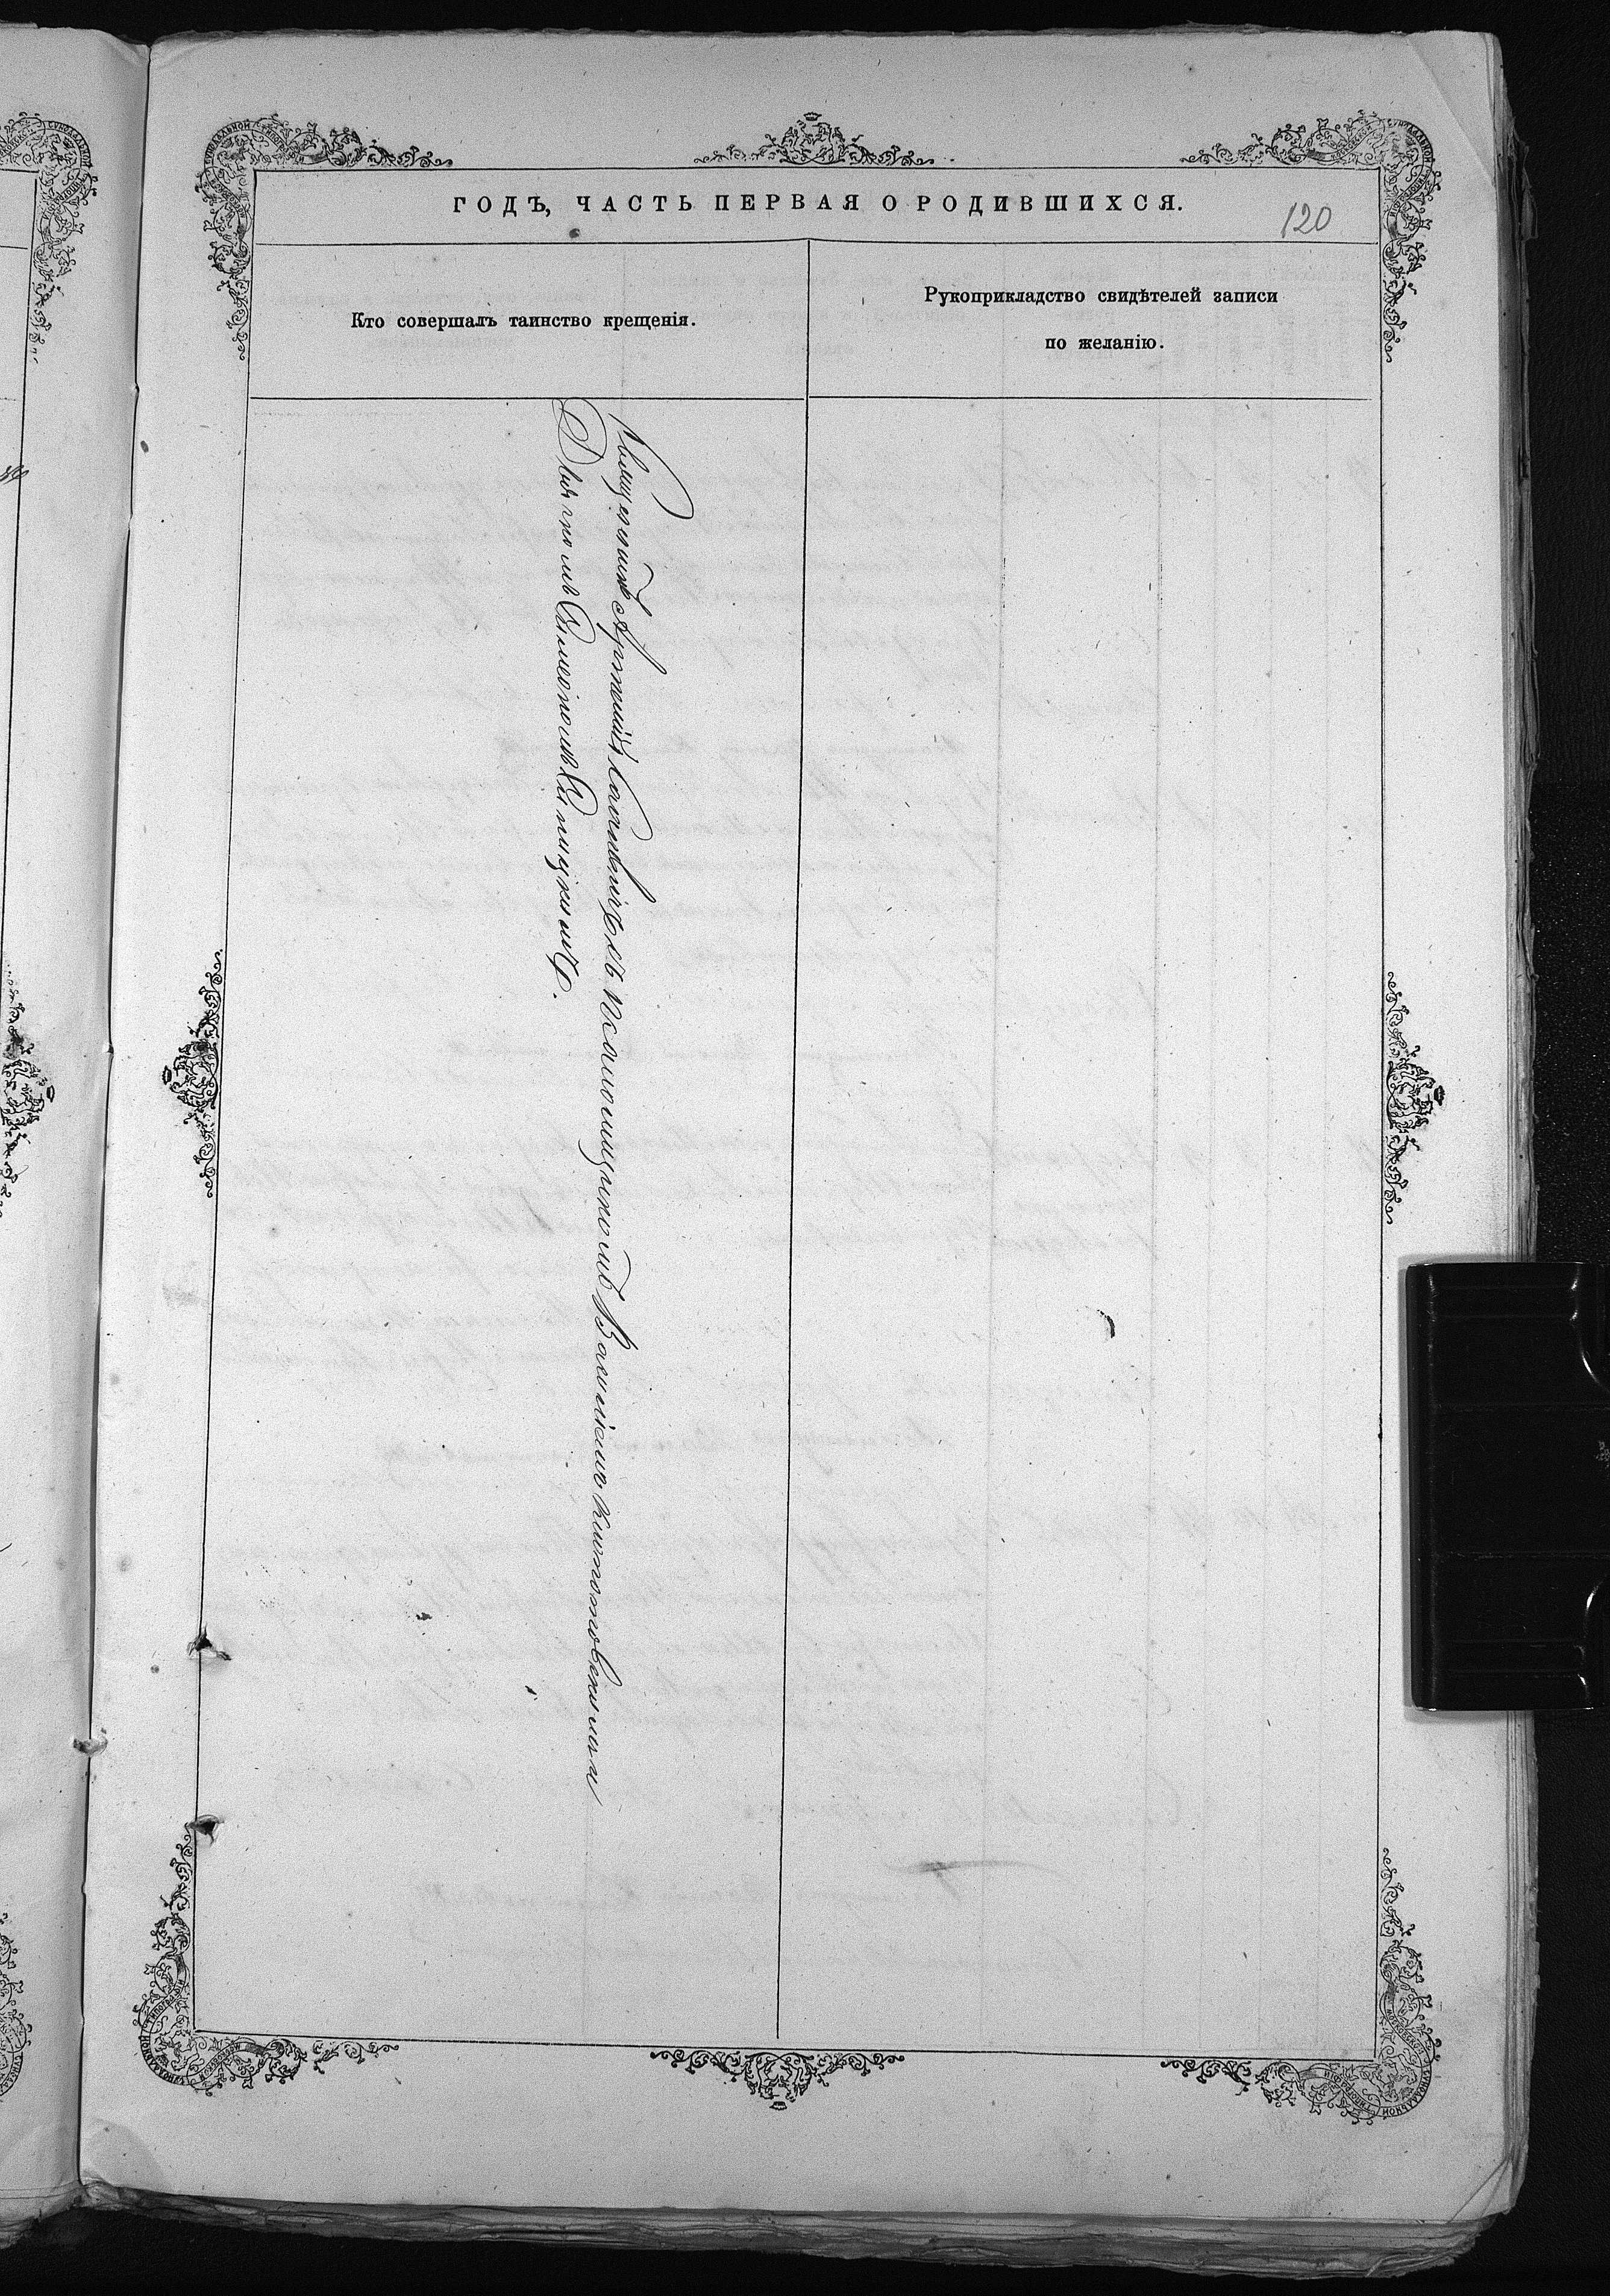 ГОДЪ, ЧАСТЬ ПЕРВАЯ О РОДИВШИХСЯ.
120
Кто совершалъ таинство крещенія.
Рукоприкладство свидѣтелей записи
по желанію.
Священникъ Артемій съ псаломщикомъ Василіемъ и
Дьячкомъ Симеономъ Синицкимъ.